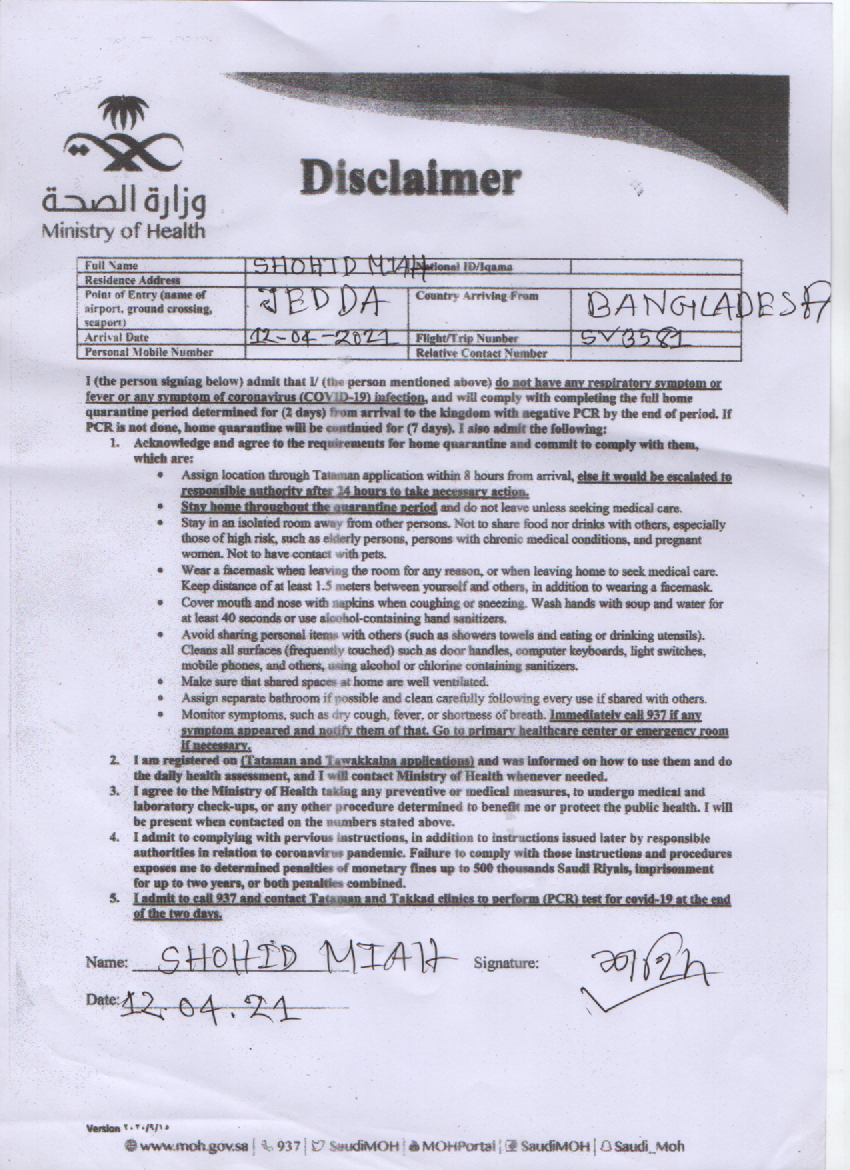 وزارة الصحة
Ministry of Health
Disclaimer
Full Name SHOHID MIAH National ID/Iqama
Residence Address
Point of Entry (name of airport, ground crossing, seaport) JEDDA Country Arriving From BANGLADESH
Arrival Date 12-04-2021 Flight/Trip Number SV3581
Personal Mobile Number Relative Contact Number
I (the person signing below) admit that I/ (the person mentioned above) do not have any respiratory symptom or
fever or any symptom of coronavirus (COVID-19) infection, and will comply with completing the full home
quarantine period determined for (2 days) from arrival to the kingdom with negative PCR by the end of period. If
PCR is not done, home quarantine will be continued for (7 days). I also admit the following:
1. Acknowledge and agree to the requirements for home quarantine and commit to comply with them,
which are:
• Assign location through Tataman application within 8 hours from arrival, else it would be escalated to
responsible authority after 24 hours to take necessary action.
• Stay home throughout the quarantine period and do not leave unless seeking medical care.
• Stay in an isolated room away from other persons. Not to share food nor drinks with others, especially
those of high risk, such as elderly persons, persons with chronic medical conditions, and pregnant
women. Not to have contact with pets.
• Wear a facemask when leaving the room for any reason, or when leaving home to seek medical care.
Keep distance of at least 1.5 meters between yourself and others, in addition to wearing a facemask.
• Cover mouth and nose with napkins when coughing or sneezing. Wash hands with soup and water for
at least 40 seconds or use alcohol-containing hand sanitizers.
• Avoid sharing personal items with others (such as showers towels and eating or drinking utensils).
Cleans all surfaces (frequently touched) such as door handles, computer keyboards, light switches,
mobile phones, and others, using alcohol or chlorine containing sanitizers.
• Make sure that shared spaces at home are well ventilated.
• Assign separate bathroom if possible and clean carefully following every use if shared with others.
• Monitor symptoms, such as dry cough, fever, or shortness of breath. Immediately call 937 if any
symptom appeared and notify them of that. Go to primary healthcare center or emergency room
if necessary.
2. I am registered on (Tataman and Tawakkalna applications) and was informed on how to use them and do
the daily health assessment, and I will contact Ministry of Health whenever needed.
3. I agree to the Ministry of Health taking any preventive or medical measures, to undergo medical and
laboratory check-ups, or any other procedure determined to benefit me or protect the public health. I will
be present when contacted on the numbers stated above.
4. I admit to complying with pervious instructions, in addition to instructions issued later by responsible
authorities in relation to coronavirus pandemic. Failure to comply with those instructions and procedures
exposes me to determined penalties of monetary fines up to 500 thousands Saudi Riyals, imprisonment
for up to two years, or both penalties combined.
5. I admit to call 937 and contact Tataman and Takkad clinics to perform (PCR) test for covid-19 at the end
of the two days.
Name: SHOHID MIAH Signature:
Date: 12.04.21
Version
www.moh.gov.sa | 937 | SaudiMOH | MOHPortal | SaudiMOH | Saudi_Moh